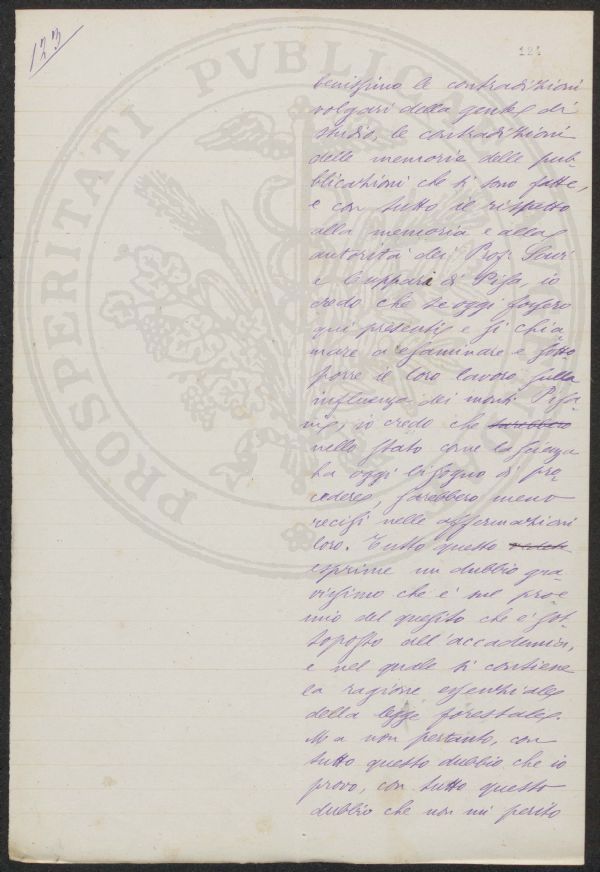 123
124
PROSPERITATI PVBLICAE
benissimo le contradizioni
volgari della gente di
studio, le contradizioni
delle memorie delle pub
blicazioni che si sono fatte,
e con tutto il rispetto
alla memoria e alla
autorità dei Prof. Savi
e Cuppari di Pisa, io
credo che se oggi fossero
qui presenti e si chia
mare a esaminare e sotto
porre il loro lavoro sulla
influenza dei monti Pisa
ni, io credo che sarebbero
nello stato come la scienza
ha oggi bisogno di pro
cedere, sarebbero meno
recisi nelle affermazioni
loro. Tutto questo
esprime un dubbio gra
vissimo che è nel proe
mio del quesito che è sot
toposto all'accademia,
e nel quale si contiene
la ragione essenziale
della legge forestale.
Ma non pertanto, con
tutto questo dubbio che io
provo, con tutto questo
dubbio che non mi perito